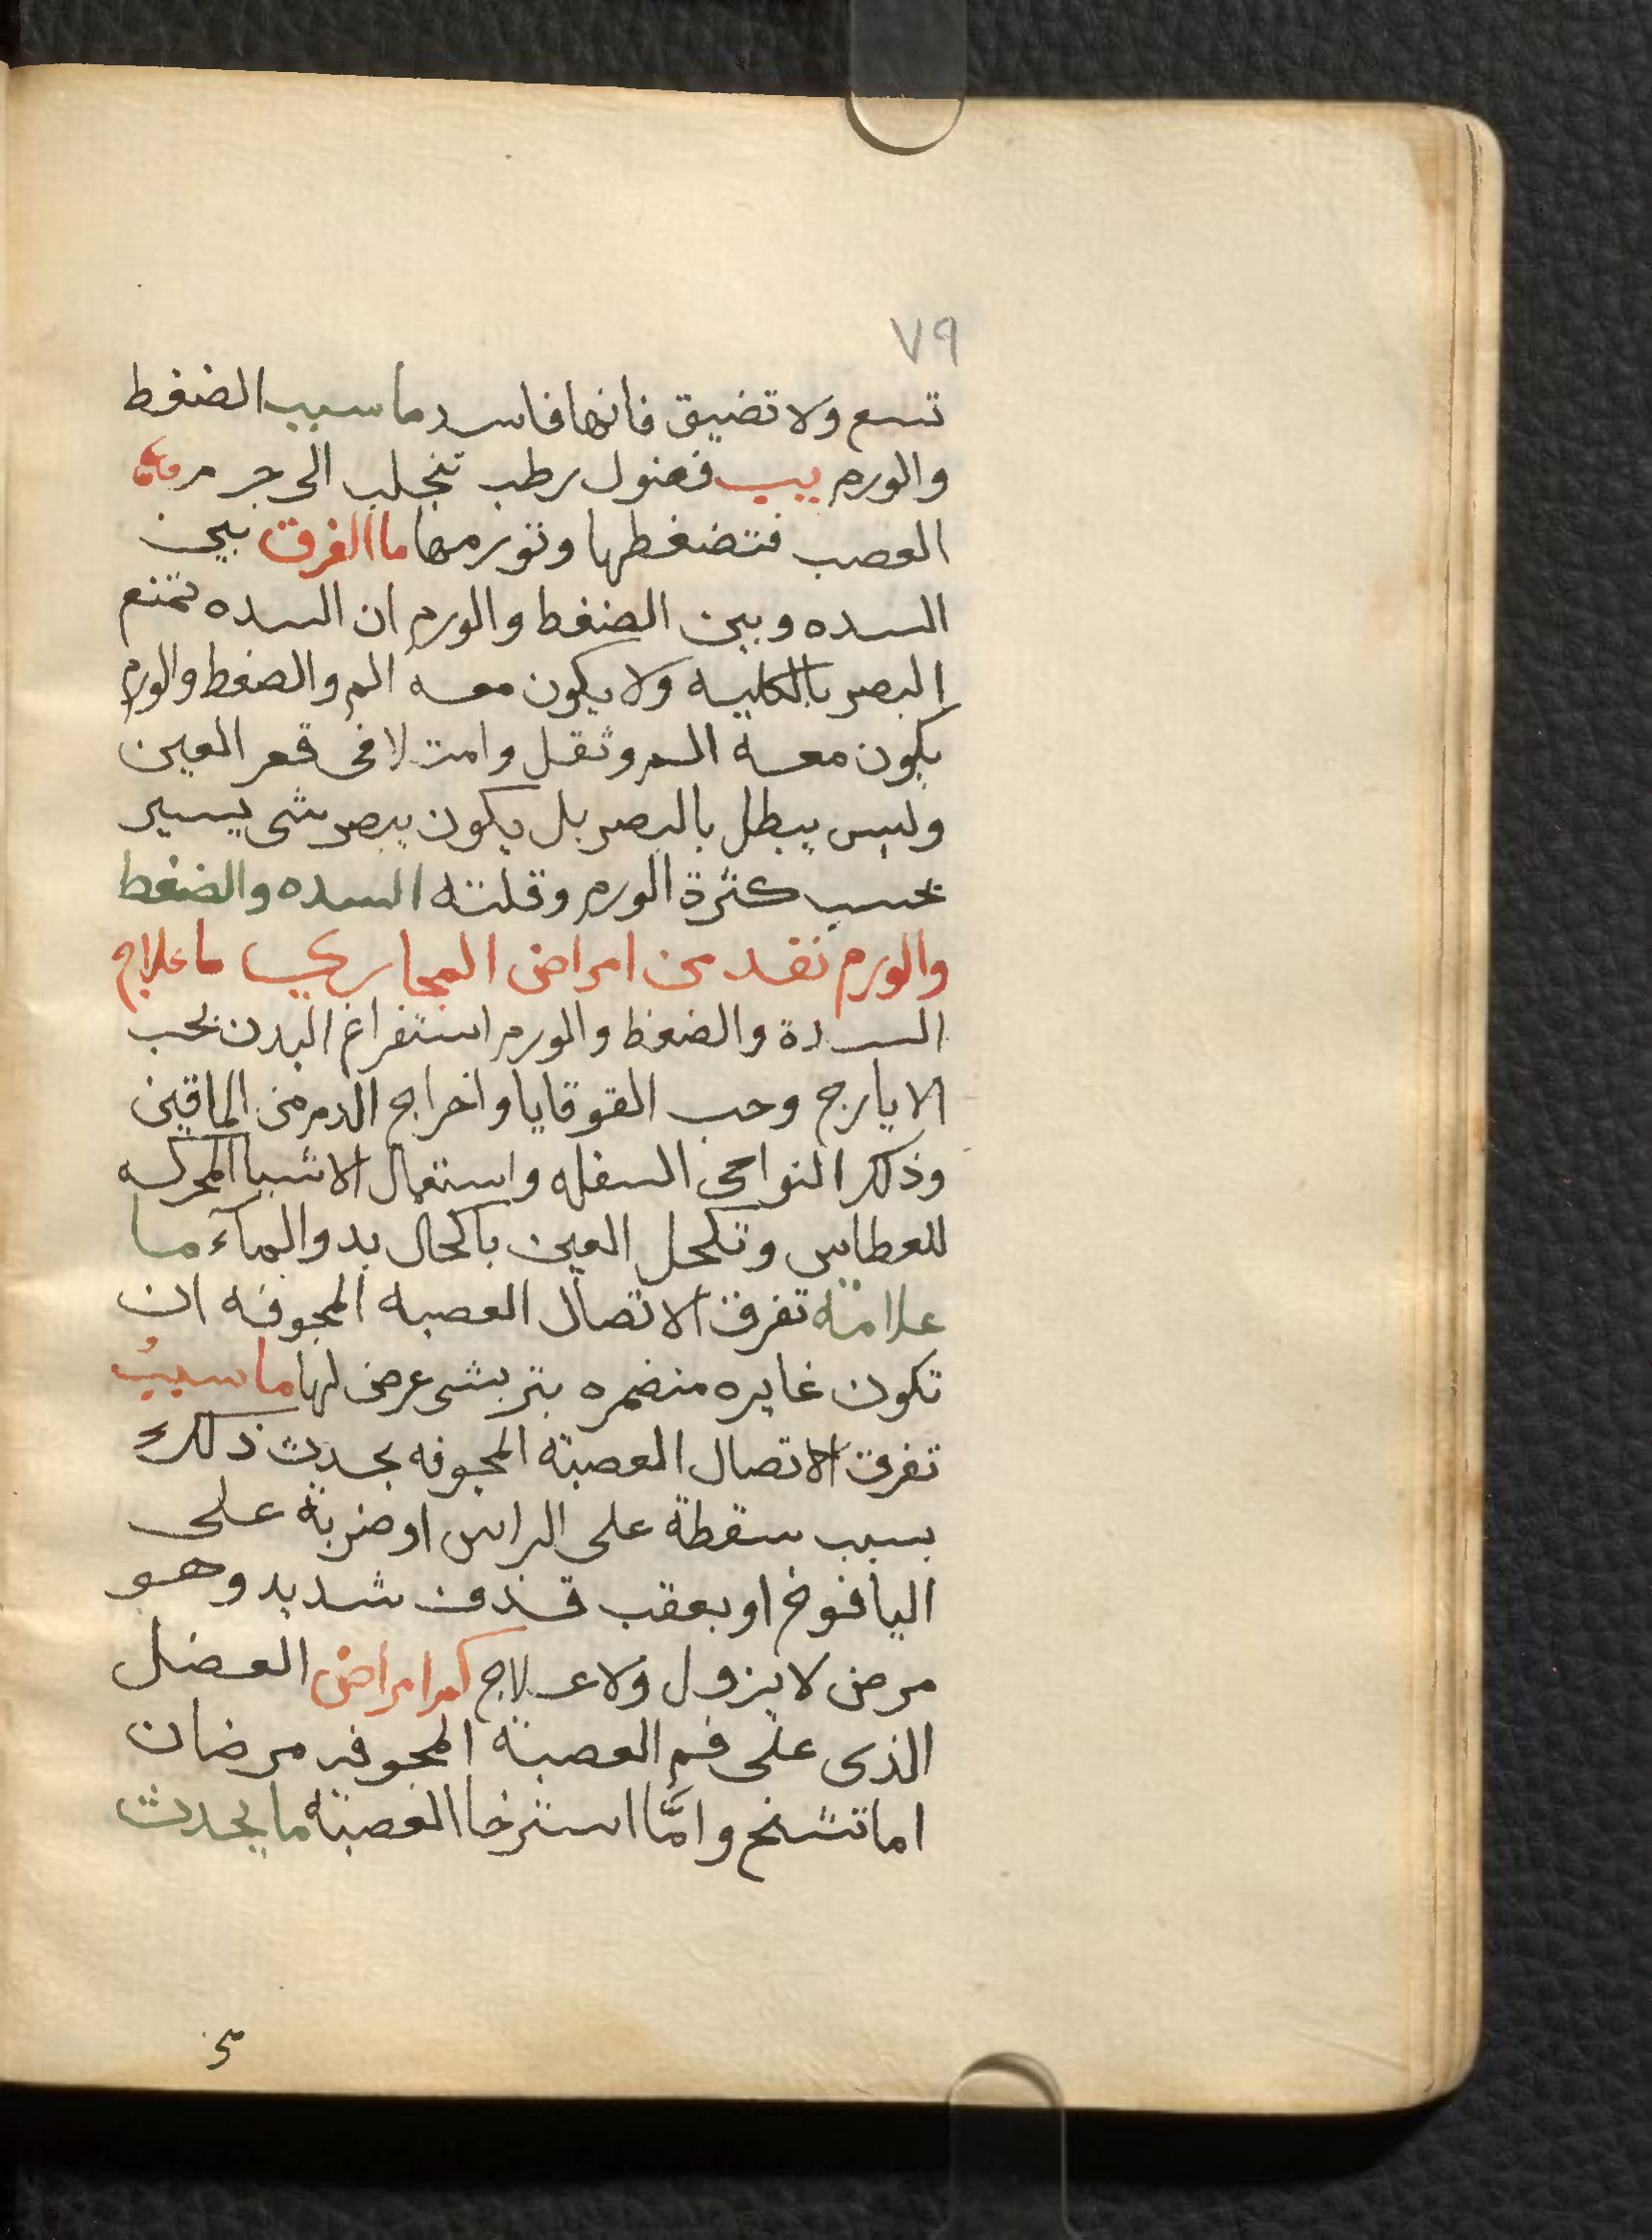 ٧٩
تسع ولا تضيق فانها فاسد ما سبب الضغط
والورم يبب فضول رطب تنجلب الى جرم
العصب فتضغطها وتورمها ما الفرق بين
السده وبين الضغط والورم ان السده تمنع
البصر بالكليه ولا يكون معه الم والضغط والورم
يكون معه الم وثقل وامتلا فى قعر العين
وليس يبطل بالبصر بل يكون يبصر شى يسير
بحسب كثرة الورم وقلته السده والضغط
والورم تعد من امراض المجارى ما علاج
السدة والضغط والورم استفراغ البدن بحب
الايارج وحب القوقايا واخراج الدم من الماقين
وذلك النواحى السفله واستعمال الاشيا المحركه
للعطاس وتكحل العين باكحال بدو الماء ما
علامة تفرق الاتصال العصبه المجوفه ان
تكون غايره منضمره بتر بشى عرض لها ما سبب
تفرق الاتصال العصبة المجوفه يحدث ذلك
بسبب سقطة على الراس او ضربة على
اليافوخ او بعقب قذف شديد وهو
مرض لا يزول ولا علاج كم امراض العضل
الذى على فم العصبة المجوفه مرضان
اما تشنج وامّا استرخا العصبة ما يحدث
من